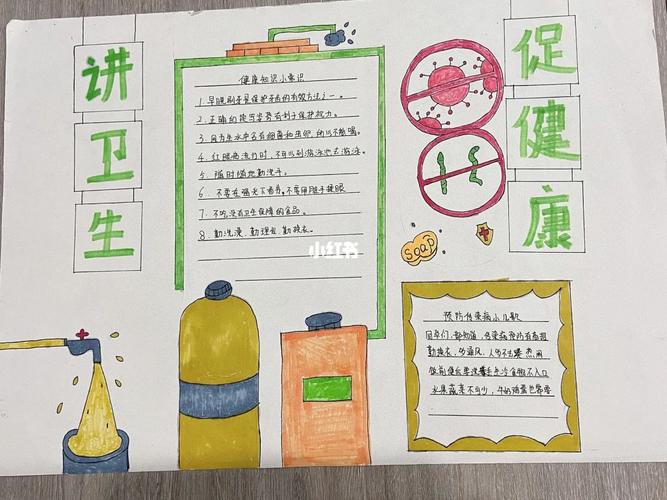 讲卫生
促健康
健康知识小常识
1. 早晚刷牙是保护牙齿的有效方法之一。
2. 正确的读写姿势有利于保护视力。
3. 因为生水中含有细菌和虫卵,所以不能喝。
4. 红眼病流行时,不可以到游泳池去游泳。
5. 随时随地勤洗手。
6. 不要在强光下看书,不要用脏手揉眼
7. 不吃没有卫生保障的食品。
8. 勤洗澡、勤理发、勤换衣。
小红书
soap
预防传染病小儿歌
同学们,都知道,传染病预防有高招
勤换衣,多通风,人多不去凑热闹
饭前便后要洗手 生冷食物不入口
水果蔬菜不可少,牛奶鸡蛋也需要